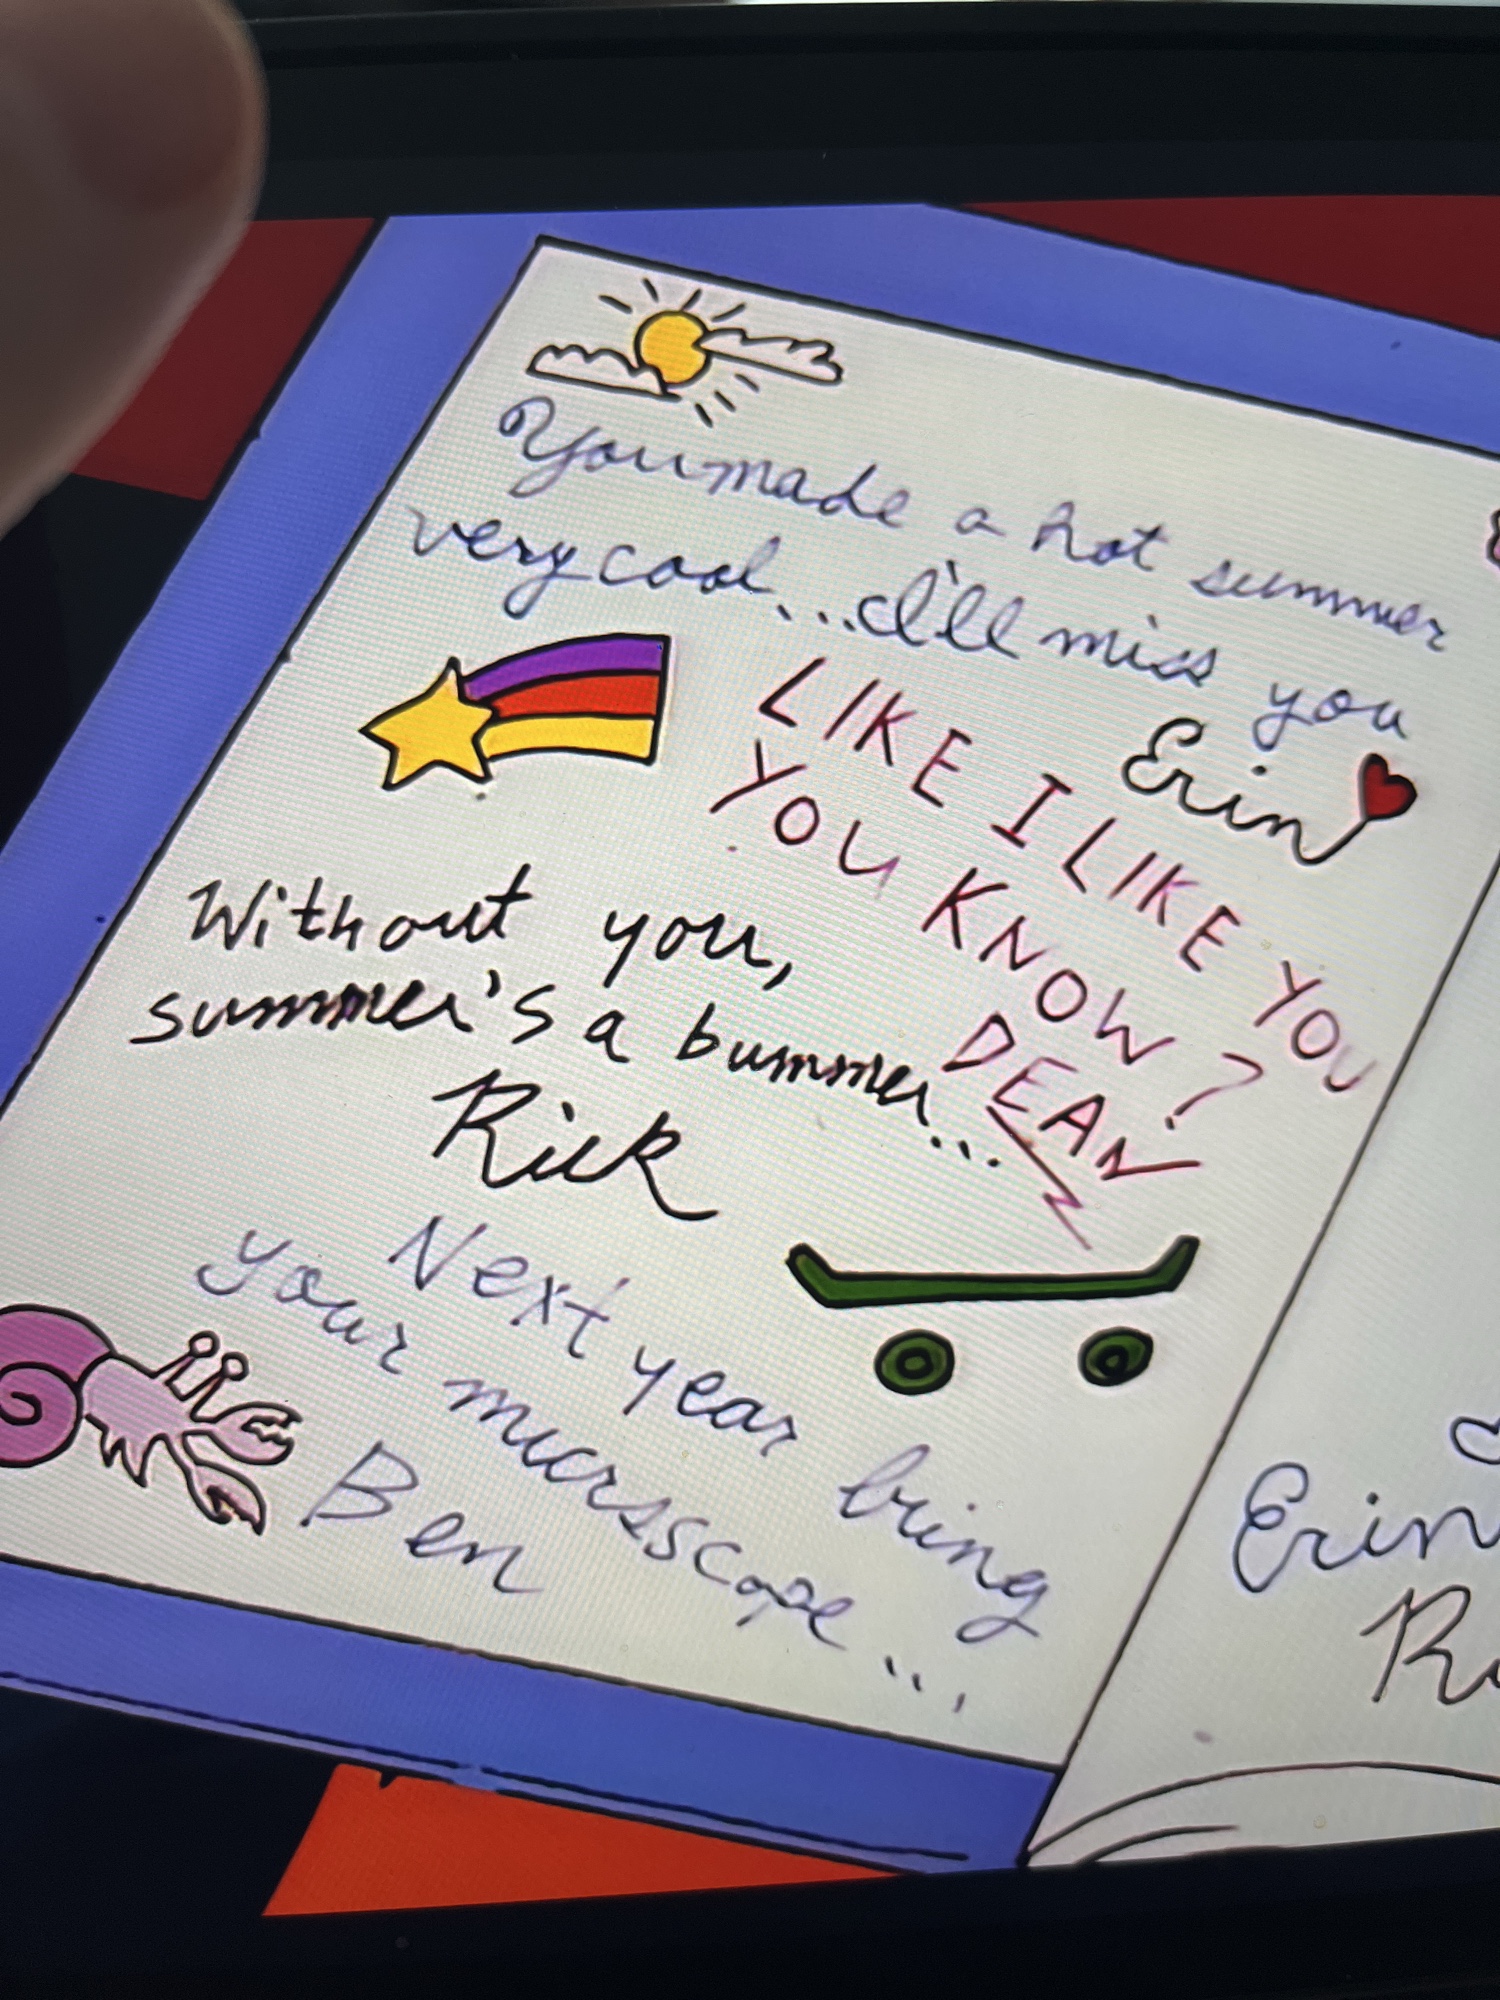 You made a hot summer
very cool...I'll miss you
Erin
LIKE I LIKE YOU
YOU KNOW?
DEAN
Without you,
summer's a bummer...
Rick
Next year bring
your micrsscope...
Ben
Erin